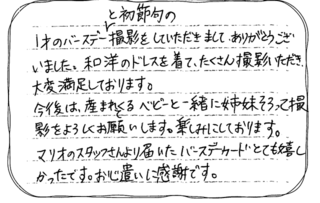 と初節句の
1才のバースデー撮影をしていただきまして、ありがとうござ
いました。和洋のドレスを着て、たくさん撮影いただき
大変満足しております。
今後は、産まれくるベビーと一緒に姉妹そろって撮
影をよろしくお願いします。楽しみにしております。
マリオのスタッフさんより届いた、バースデーカードとても嬉し
かったです。お心遣いに感謝です。